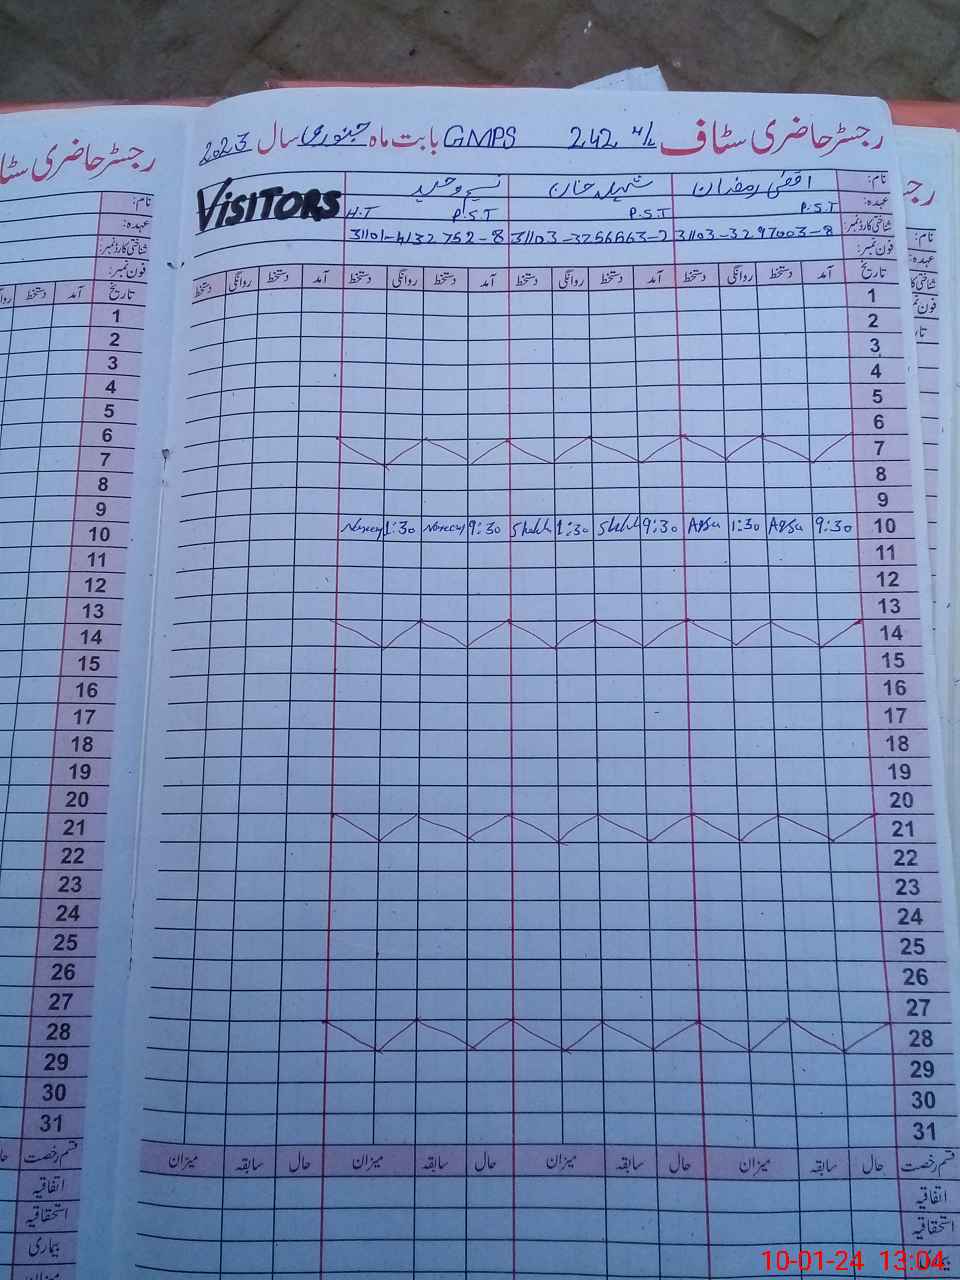 رجسٹر حاضری سٹاف 242 4/L GMPS بابت ماہ جنوری سال 2023
نام: اقصٰی رمضان شہیلہ خان
VISITORS
عہدہ: P.S.T P.S.T P.S.T H.T
شناختی کارڈ نمبر: 31103-3297003-8 31103-3256563-2 31101-4132752-8
فون نمبر:
تاریخ آمد دستخط روانگی دستخط آمد دستخط روانگی دستخط آمد دستخط روانگی دستخط آمد دستخط روانگی دستخط
1
2
3
4
5
6
7
8
9
10 9:30 Aqsa 1:30 Aqsa 9:30 1:30 9:30 1:30
11
12
13
14
15
16
17
18
19
20
21
22
23
24
25
26
27
28
29
30
31
قسم رخصت حال سابقہ میزان حال سابقہ میزان حال سابقہ میزان حال سابقہ میزان
اتفاقیہ
استحقاقیہ
10-01-24 13:04
رجسٹر حاضری سٹا
نام:
عہدہ:
شناختی کارڈ نمبر:
فون نمبر:
تاریخ آمد دستخط
1
2
3
4
5
6
7
8
9
10
11
12
13
14
15
16
17
18
19
20
21
22
23
24
25
26
27
28
29
30
31
قسم رخصت
اتفاقیہ
استحقاقیہ
بیماری
میزان